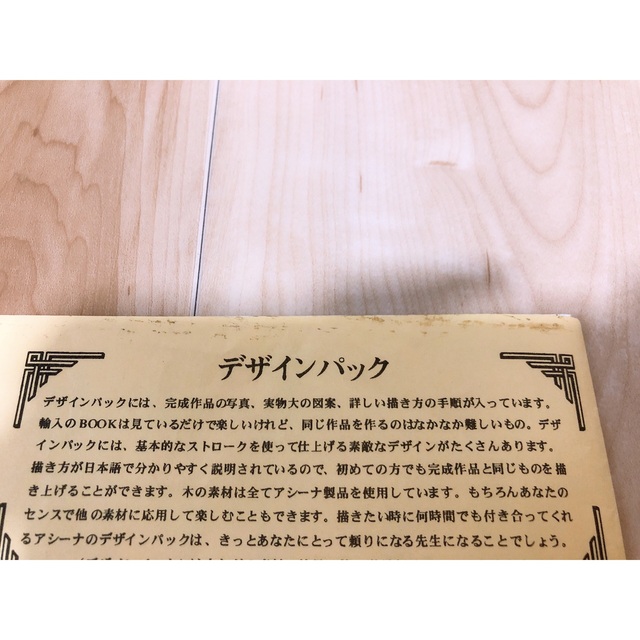 デザインパック
デザインパックには、完成作品の写真、実物大の図案、詳しい描き方の手順が入っています。
輸入のBOOKは見ているだけで楽しいけれど、同じ作品を作るのはなかなか難しいもの。デザ
インパックには、基本的なストロークを使って仕上げる素敵なデザインがたくさんあります。
描き方が日本語で分かりやすく説明されているので、初めての方でも完成作品と同じものを描
き上げることができます。木の素材は全てアシーナ製品を使用しています。もちろんあなたの
センスで他の素材に応用して楽しむこともできます。描きたい時に何時間でも付き合ってくれ
るアシーナのデザインパックは、きっとあなたにとって頼りになる先生になることでしょう。